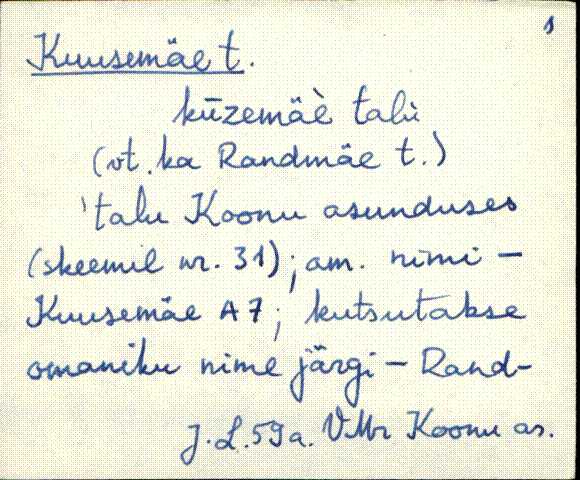 1
Kuusemäe t.
kūzemäè talù
(vt. ka Randmäe t.)
'talu Koonu asunduses
(skeemil nr. 31); am. nimi –
Kuusemäe A7; kutsutakse
omaniku nime järgi – Rand-
J. L. 59 a. VMr Koonu as.